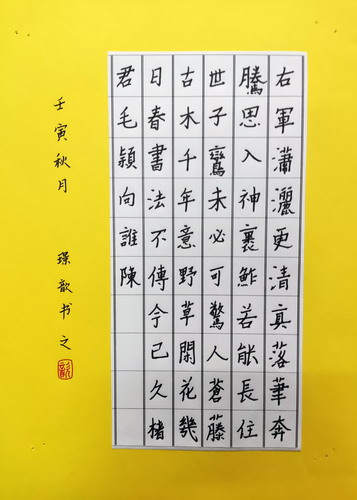 右軍瀟灑更清真落筆奔
騰思入神裹鮓若能長住
世子鸞未必可驚人蒼藤
古木千年意野草閑花幾
日春書法不傳今已久楮
君毛穎向誰陳
壬寅秋月 璟歆书之